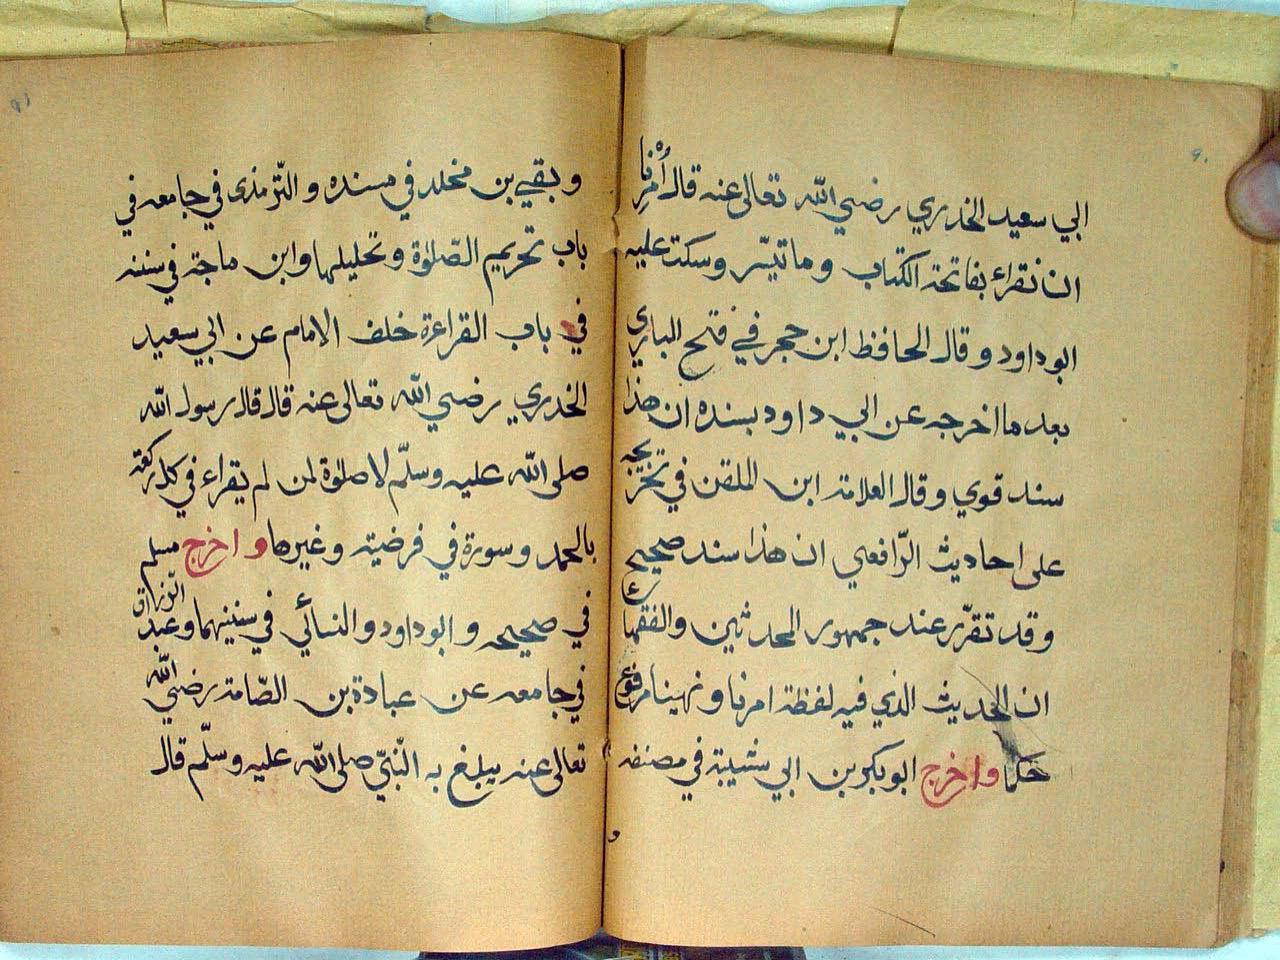 ٩٠
ابي سعيد الخدري رضي الله تعالى عنه قال أُمْرِنا
ان نقراء بفاتحة الكتاب وما تيسّر وسكت عليه
ابو داود وقال الحافظ ابن حجر في فتح الباري
بعد ما اخرجه عن ابي داود بسنده ان هذا
سند قوي وقال العلامة ابن الملقن في تخريجه
على احاديث الرّافعي ان هذا سند صحيح
وقد تقرّر عند جمهور المحدثين والفقهاء
ان الحديث الذي فيه لفظة امرنا ونهينا مرفوع
حكما واخرج ابو بكر بن ابي شيبة في مصنفه
و
٩١
وبقي بن مخلد في مسنده والتّرمذى في جامعه في
باب تحريم الصّلوٰة وتحليلها وابن ماجة في سننه
في باب القراءة خلف الامام عن ابي سعيد
الخدري رضي الله تعالى عنه قال قال رسول الله
صلى الله عليه وسلّم لا صلوٰة لمن لم يقراء في كل ركعة
بالحمد وسورة في فرضية وغيرها واخرج مسلم
في صحيحه وابو داود والنسائي في سننيهما وعبد الرّزاق
في جامعه عن عبادة بن الصّامة رضي الله
تعالى عنه يبلغ به النّبيّ صلى الله عليه وسلّم قال